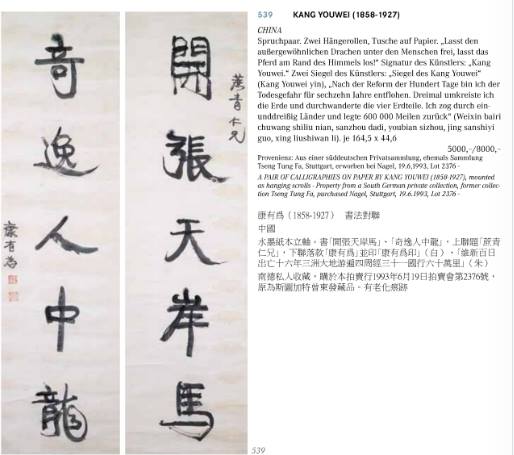 開張天岸馬
蔗青仁兄
奇逸人中龍
康有為
539 KANG YOUWEI (1858-1927)
CHINA
Spruchpaar. Zwei Hängerollen, Tusche auf Papier. „Lasst den
außergewöhnlichen Drachen unter den Menschen frei, lasst das
Pferd am Rand des Himmels los!“ Signatur des Künstlers: „Kang
Youwei.“ Zwei Siegel des Künstlers: „Siegel des Kang Youwei“
(Kang Youwei yin), „Nach der Reform der Hundert Tage bin ich der
Todesgefahr für sechzehn Jahre entflohen. Dreimal umkreiste ich
die Erde und durchwanderte die vier Erdteile. Ich zog durch ein-
unddreißig Länder und legte 600 000 Meilen zurück“ (Weixin bairi
chuwang shiliu nian, sanzhou dadi, youbian sizhou, jing sanshiyi
guo, xing liushiwan li). je 164,5 x 44,6
5000,-/8000,-
Provenienz: Aus einer süddeutschen Privatsammlung, ehemals Sammlung
Tseng Tung Fa, Stuttgart, erworben bei Nagel, 19.6.1993, Lot 2376 -
A PAIR OF CALLIGRAPHIES ON PAPER BY KANG YOUWEI (1858-1927), mounted
as hanging scrolls - Property from a South German private collection, former collec-
tion Tseng Tung Fa, purchased Nagel, Stuttgart, 19.6.1993, Lot 2376 -
康有爲（1858-1927） 書法對聯
中國
水墨紙本立軸。書「開張天岸馬」、「奇逸人中龍」，上聯題「蔗青
仁兄」，下聯落款「康有爲」並印「康有爲印」（白）、「維新百日
出亡十六年三洲大地游遍四周經三十一國行六十萬里」（朱）
南德私人收藏。購於本拍賣行1993年6月19日拍賣會第2376號，
原為斯圖加特曾東發藏品。有老化痕跡
539